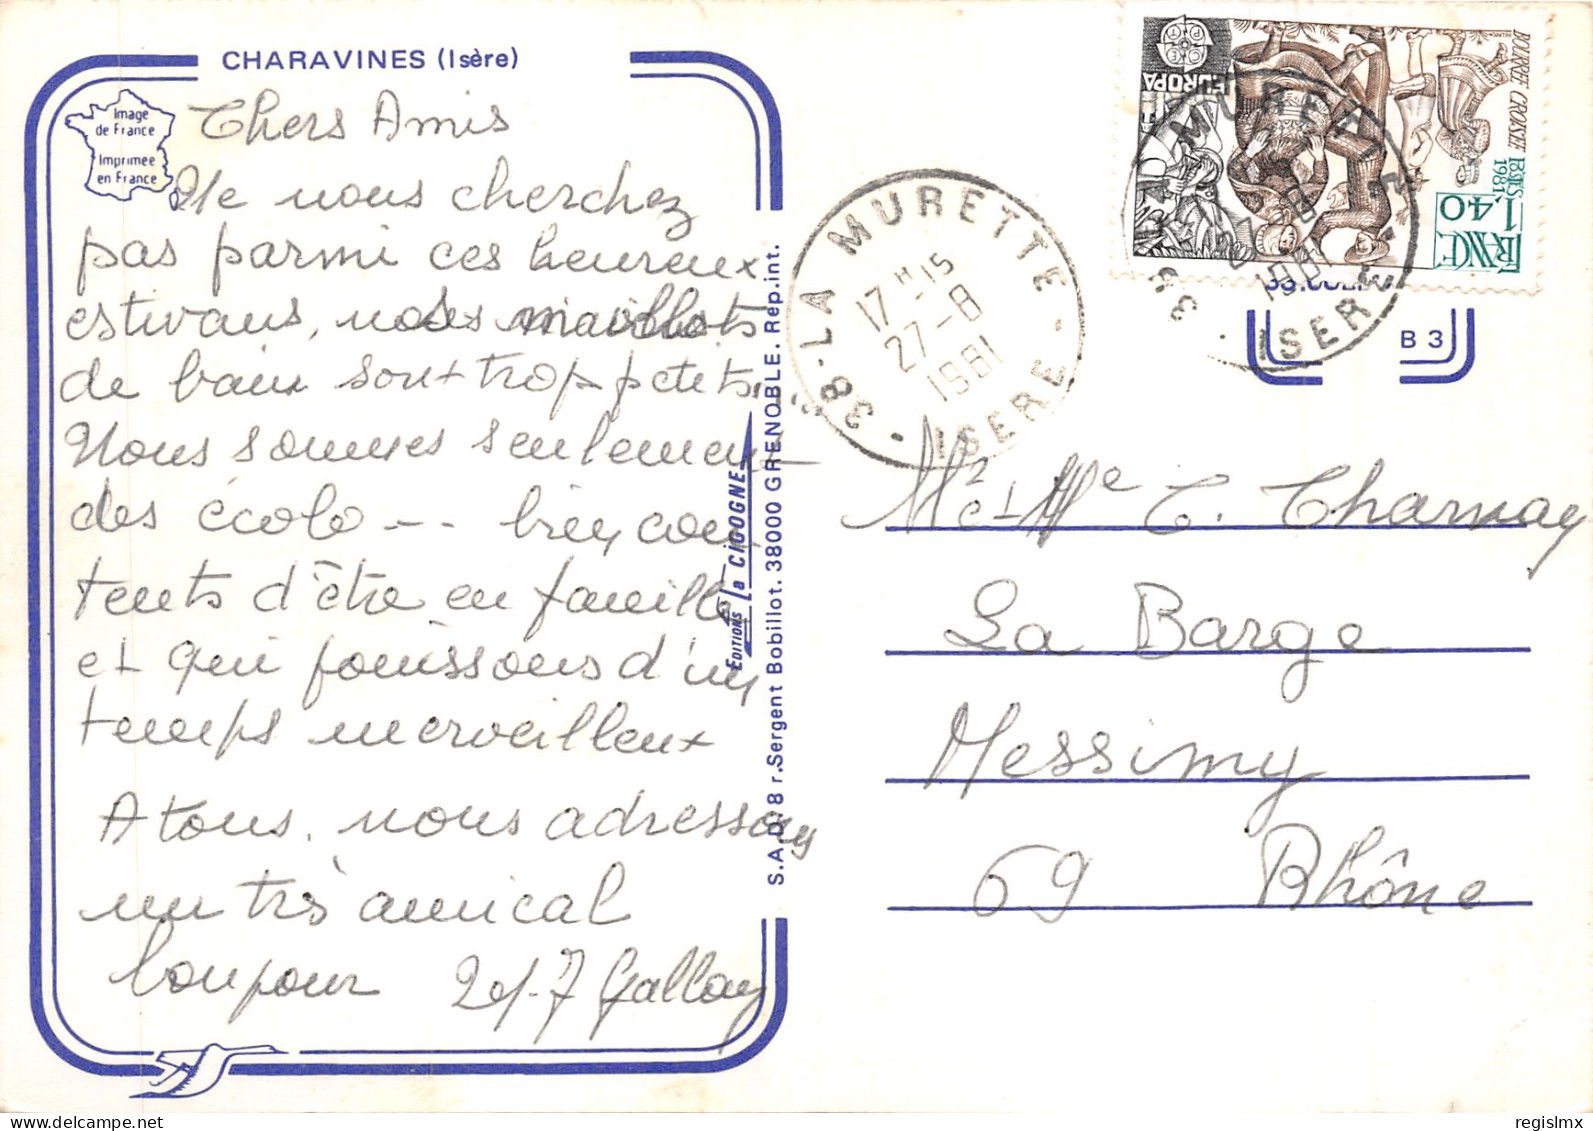 CHARAVINES (Isère)
Image
de France
Imprimée
en France
Chers Amis
Ne nous cherchez
pas parmi ces heureux
estivans, nos maillots
de bain sont trop petits.
Nous sommes seulement
des écolo -- bien con
tents d'être en famille
et qui jouissons d'un
temps merveilleux
A tous, nous adressons
un très amical
bonjour Gallay
EDITIONS La CIGOGNE
S.A.D. 8 r.Sergent Bobillot. 38000 GRENOBLE. Rép.int.
38-LA MURETTE - ISERE
17 H 15
27-8
1981
EUROPA
CEPT
BOURREE CROISEE
POSTES
1981
1,40
FRANCE
38-LA MURETTE - ISERE
27-8
1981
B 3
Mr et Me C. Charnay
La Barge
Messimy
69 Rhône
regislmx